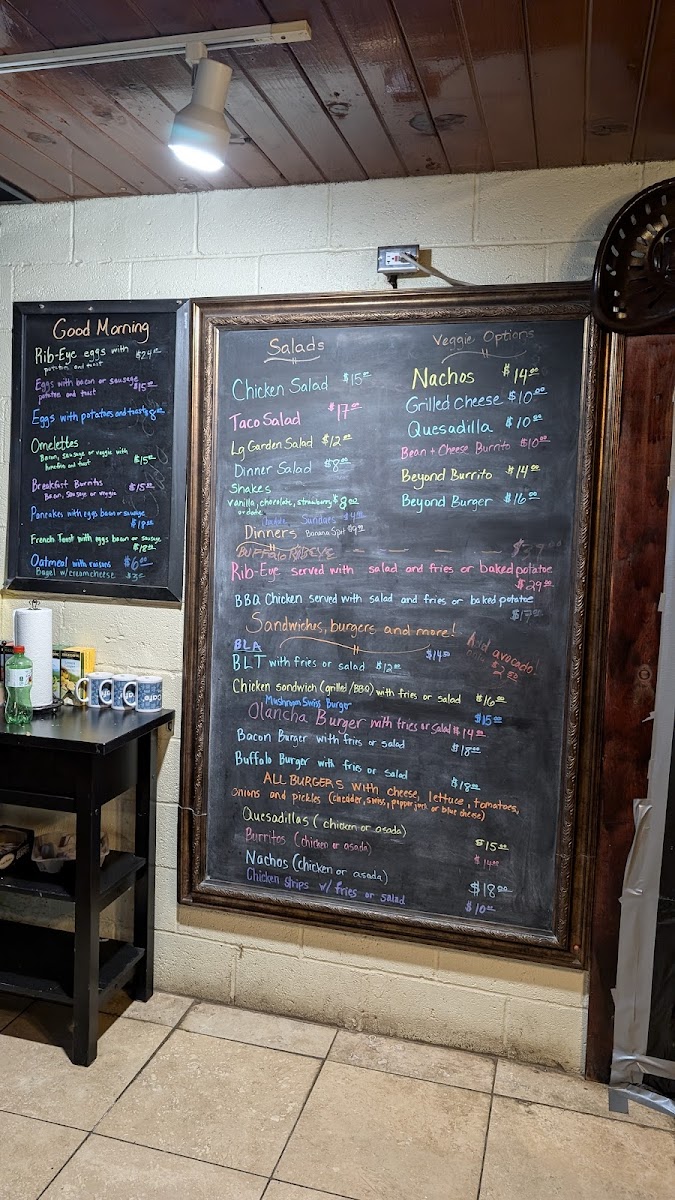 Good Morning
Rib-Eye eggs with $24.00
potatoes and toast
Eggs with bacon or sausage
potatoes and toast $15.00
Eggs with potatoes and toast $8.00
Omelettes
Bacon, sausage or veggie with
and toast $15.00
Breakfast Burritos $15.00
Bacon, Sausage or veggie
Pancakes with eggs bacon or sausage
$18.00
French Toast with eggs bacon or sausage
$18.00
Oatmeal with raisins $6.00
Bagel w/creamcheese
Salads
Chicken Salad $15.00
Taco Salad $17.00
Lg Garden Salad $12.00
Dinner Salad $8.00
Shakes
vanilla, chocolate, strawberry $8.00
or date
Sundaes
Veggie Options
Nachos $14.00
Grilled Cheese $10.00
Quesadilla $10.00
Bean + Cheese Burrito $10.00
Beyond Burrito $14.00
Beyond Burger $16.00
Dinners Banana Split
BUFFALO RIBEYE
Rib-Eye served with salad and fries or baked potatoe
$29.00
BBQ Chicken served with salad and fries or baked potatoe
$17.00
Sandwiches, burgers and more!
Add avocado!
$2.00
BLA $14.00
BLT with fries or salad $12.00
Chicken sandwich (grilled/BBQ) with fries or salad $16.00
Mushroom Swiss Burger $15.00
Olancha Burger with fries or Salad $14.00
Bacon Burger with fries or salad $18.00
Buffalo Burger with fries or salad $18.00
ALL BURGERS with cheese, lettuce, tomatoes,
onions and pickles (chedder, swiss, pepperjack or blue cheese)
Quesadillas (chicken or asada) $15.00
Burritos (chicken or asada) $14.00
Nachos (chicken or asada) $18.00
Chicken strips w/ fries or salad $10.00